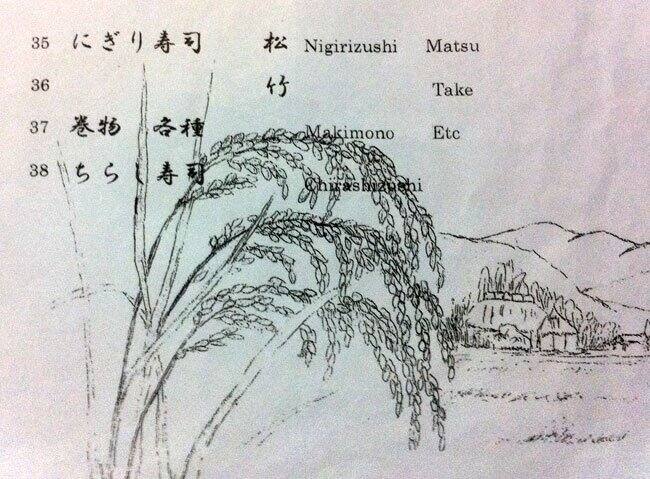 35 にぎり寿司 松 Nigirizushi Matsu
36 竹 Take
37 巻物 各種 Makimono Etc
38 ちらし寿司 Chirashizushi